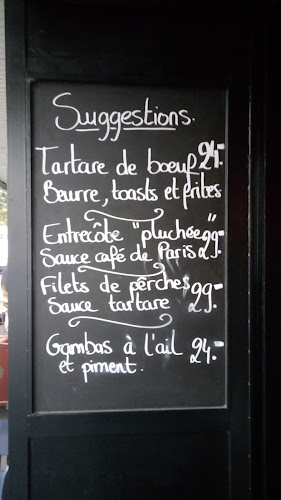 Suggestions.
Tartare de boeuf 24.-
Beurre, toasts et frites
Entrecôte "pluchée"
Sauce café de Paris 29.-
Filets de perches
Sauce tartare 29.-
Gambas à l'ail 24.-
et piment.